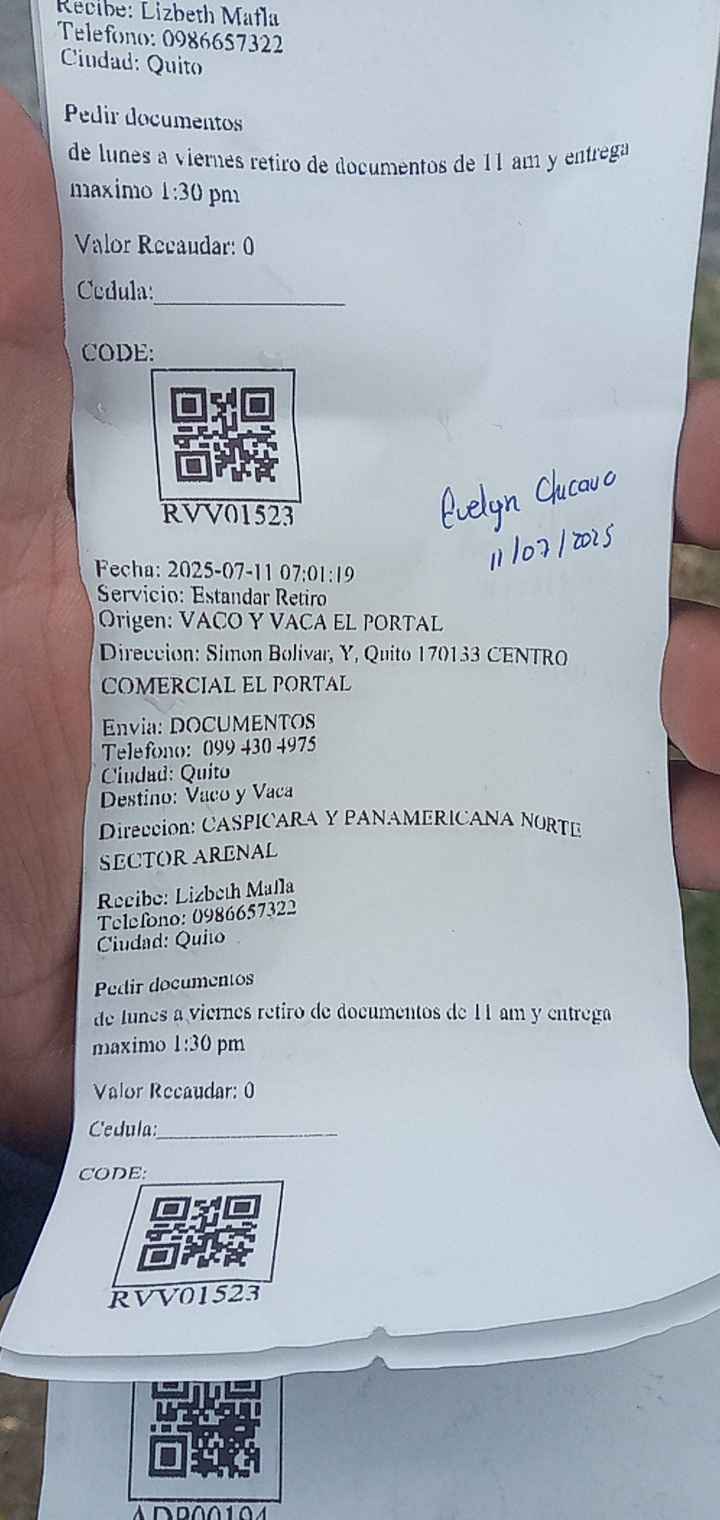 Recibe: Lizbeth Mafla
Telefono: 0986657322
Ciudad: Quito
Pedir documentos
de lunes a viernes retiro de documentos de 11 am y entrega
maximo 1:30 pm
Valor Recaudar: 0
Cedula:
CODE:
RVV01523
Evelyn Chcavo
11/07/2025
Fecha: 2025-07-11 07:01:19
Servicio: Estandar Retiro
Origen: VACO Y VACA EL PORTAL
Direccion: Simon Bolivar, Y, Quito 170133 CENTRO
COMERCIAL EL PORTAL
Envia: DOCUMENTOS
Telefono: 099 430 4975
Ciudad: Quito
Destino: Vaco y Vaca
Direccion: CASPICARA Y PANAMERICANA NORTE
SECTOR ARENAL
Recibe: Lizbeth Mafla
Telefono: 0986657322
Ciudad: Quito
Pedir documentos
de lunes a viernes retiro de documentos de 11 am y entrega
maximo 1:30 pm
Valor Recaudar: 0
Cedula:
CODE:
RVV01523